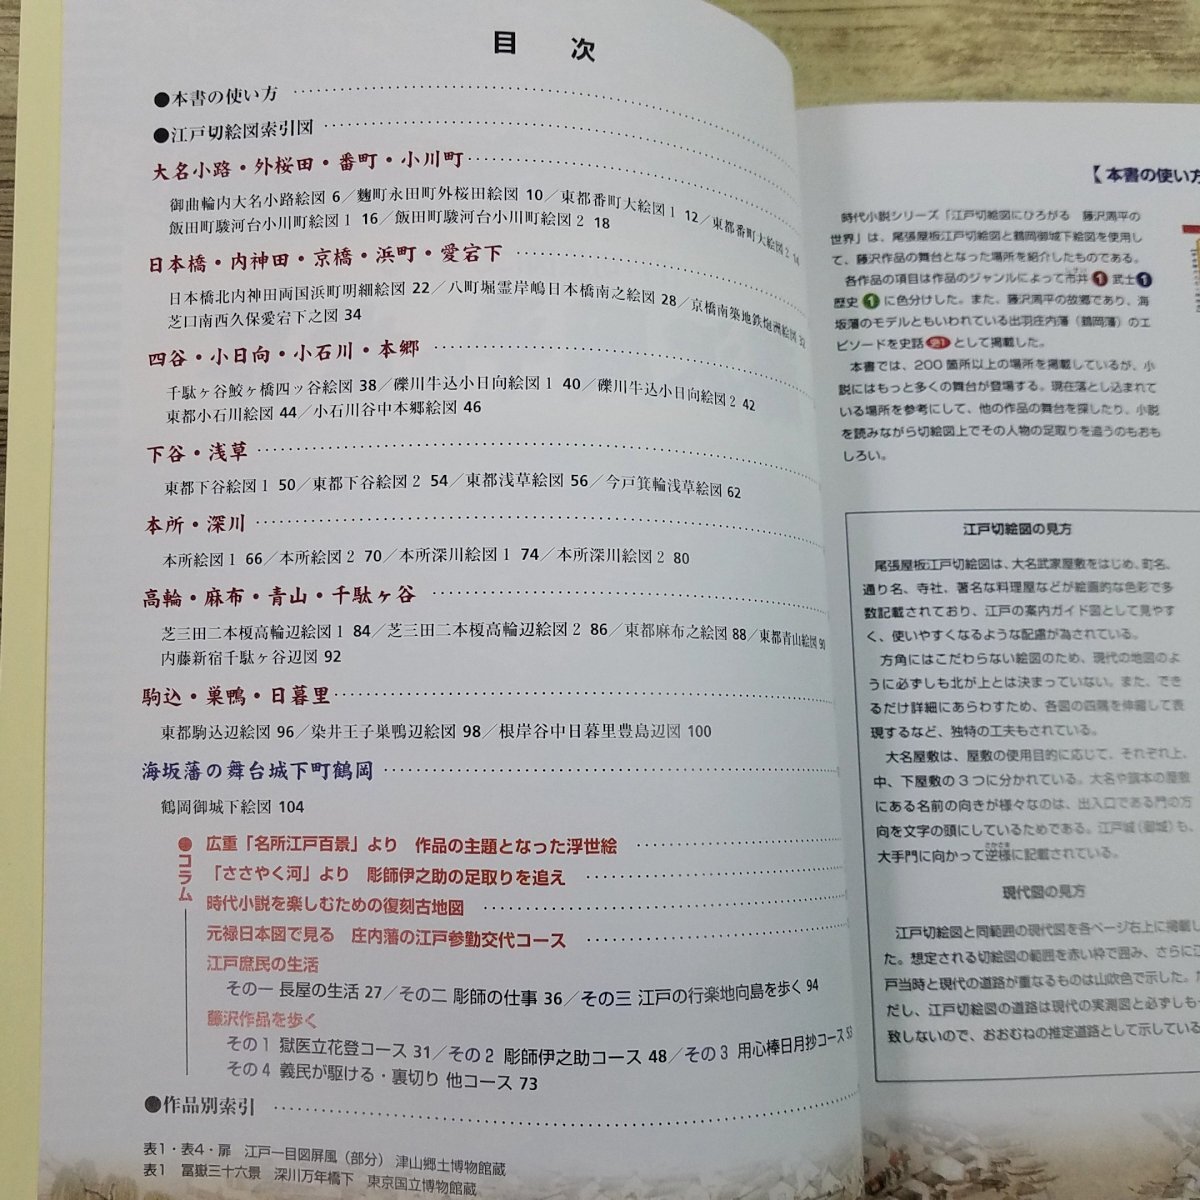 目 次
●本書の使い方
●江戸切絵図索引図
大名小路・外桜田・番町・小川町
御曲輪内大名小路絵図 6／麴町永田町外桜田絵図 10／東都番町大絵図1 12／東都番町大絵図2 14
飯田町駿河台小川町絵図1 16／飯田町駿河台小川町絵図2 18
日本橋・内神田・京橋・浜町・愛宕下
日本橋北内神田両国浜町明細絵図 22／八町堀霊岸嶋日本橋南之絵図 28／京橋南築地鉄炮洲絵図 32
芝口南西久保愛宕下之図 34
四谷・小日向・小石川・本郷
千駄ヶ谷鮫ヶ橋四ッ谷絵図 38／礫川牛込小日向絵図1 40／礫川牛込小日向絵図2 42
東都小石川絵図 44／小石川谷中本郷絵図 46
下谷・浅草
東都下谷絵図1 50／東都下谷絵図2 54／東都浅草絵図 56／今戸箕輪浅草絵図 62
本所・深川
本所絵図1 66／本所絵図2 70／本所深川絵図1 74／本所深川絵図2 80
高輪・麻布・青山・千駄ヶ谷
芝三田二本榎高輪辺絵図1 84／芝三田二本榎高輪辺絵図2 86／東都麻布之絵図 88／東都青山絵図 90
内藤新宿千駄ヶ谷辺図 92
駒込・巣鴨・日暮里
東都駒込辺絵図 96／染井王子巣鴨辺絵図 98／根岸谷中日暮里豊島辺図 100
海坂藩の舞台城下町鶴岡
鶴岡御城下絵図 104
●コラム
広重「名所江戸百景」より 作品の主題となった浮世絵
「ささやく河」より 彫師伊之助の足取りを追え
時代小説を楽しむための復刻古地図
元禄日本図で見る 庄内藩の江戸参勤交代コース
江戸庶民の生活
その一 長屋の生活 27／その二 彫師の仕事 36／その三 江戸の行楽地向島を歩く 94
藤沢作品を歩く
その1 獄医立花登コース 31／その2 彫師伊之助コース 48／その3 用心棒日月抄コース
その4 義民が駆ける・裏切り 他コース 73
●作品別索引
表1・表4・扉 江戸一目図屏風（部分） 津山郷土博物館蔵
表1 冨嶽三十六景 深川万年橋下 東京国立博物館蔵
【本書の使い方
時代小説シリーズ「江戸切絵図にひろがる 藤沢周平の
世界」は、尾張屋板江戸切絵図と鶴岡御城下絵図を使用し
て、藤沢作品の舞台となった場所を紹介したものである。
各作品の項目は作品のジャンルによって市井1武士1
歴史1に色分けした。また、藤沢周平の故郷であり、海
坂藩のモデルともいわれている出羽庄内藩（鶴岡藩）のエ
ピソードを史話 として掲載した。
本書では、200箇所以上の場所を掲載しているが、小
説にはもっと多くの舞台が登場する。現在落とし込まれて
いる場所を参考にして、他の作品の舞台を探したり、小説
を読みながら切絵図上でその人物の足取りを追うのもおも
しろい。
江戸切絵図の見方
尾張屋板江戸切絵図は、大名武家屋敷をはじめ、町名、
通り名、寺社、著名な料理屋などが絵画的な色彩で多
数記載されており、江戸の案内ガイド図として見やす
く、使いやすくなるような配慮が為されている。
方角にはこだわらない絵図のため、現代の地図のよ
うに必ずしも北が上とは決まっていない。また、でき
るだけ詳細にあらわすため、各図の四隅を伸縮して表
現するなど、独特の工夫もされている。
大名屋敷は、屋敷の使用目的に応じて、それぞれ上、
中、下屋敷の3つに分かれている。大名や旗本の屋敷
にある名前の向きが様々なのは、出入口である門の方
向を文字の頭にしているためである。江戸城（御城）も、
大手門に向かって逆様に記載されている。
現代図の見方
江戸切絵図と同範囲の現代図を各ページ右上に掲載し
た。想定される切絵図の範囲を赤い枠で囲み、さらに江
戸当時と現代の道路が重なるものは山吹色で示した。た
だし、江戸切絵図の道路は現代の実測図と必ずしも一
致しないので、おおむねの推定道路として示している